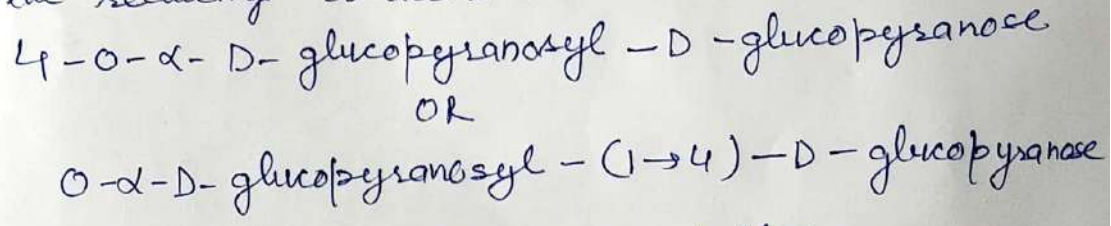 4-O-α-D-glucopyranosyl-D-glucopyranose
OR
O-α-D-glucopyranosyl-(1→4)-D-glucopyranose